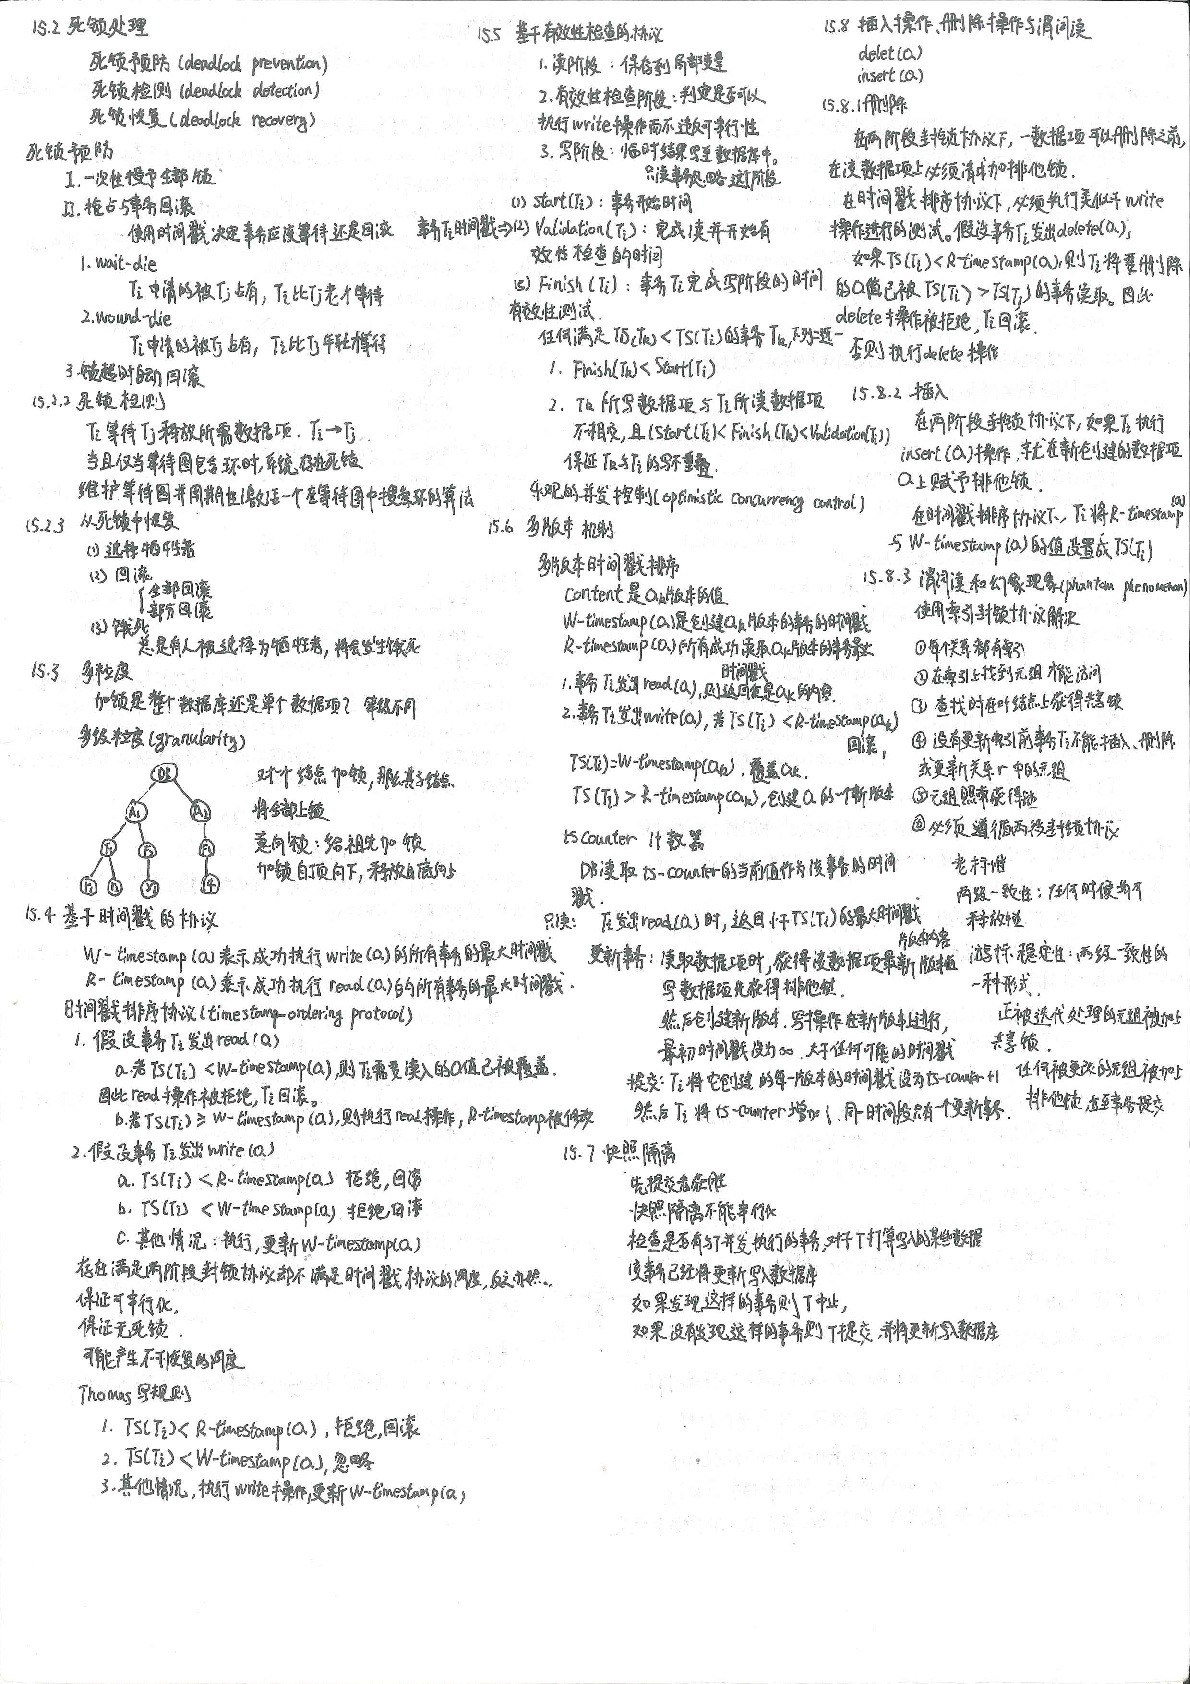 15.2 死锁处理
死锁预防 (deadlock prevention)
死锁检测 (deadlock detection)
死锁恢复 (deadlock recovery)
死锁预防
I. 一次性授予全部锁
II. 抢占与事务回滚
使用时间戳决定事务应该等待还是回滚
1. wait-die
Ti 申请的被Tj占有, Ti比Tj老才等待
2. wound-die
Ti 申请的被Tj占有, Ti比Tj年轻才等待
3. 锁超时自动回滚
15.2.2 死锁检测
Ti等待Tj释放所需数据项. Ti→Tj
当且仅当等待图包含环时,系统存在死锁
维护等待图并周期性激活一个在等待图中搜索环的算法
15.2.3 从死锁中恢复
(1) 选择牺牲者
(2) 回滚
全部回滚
部分回滚
(3) 饿死
总是有人被选择为牺牲者, 将会发生饿死
15.3 多粒度
加锁是整个数据库还是单个数据项? 等级不同
多级粒度(granularity)
DB
A1 A2
对个结点加锁, 那么其子结点
将全部上锁
意向锁: 给祖先加锁
加锁自顶向下, 释放自底向上
15.4 基于时间戳的协议
W-timestamp(Q)表示成功执行write(Q)的所有事务的最大时间戳
R-timestamp(Q)表示成功执行read(Q)的所有事务的最大时间戳.
时间戳排序协议(timestamp-ordering protocol)
1. 假设事务Ti发出read(Q)
a. 若TS(Ti) < W-timestamp(Q), 则Ti需要读入的Q值已被覆盖.
因此read操作被拒绝, Ti回滚。
b. 若TS(Ti) ≥ W-timestamp(Q), 则执行read操作, R-timestamp被修改
2. 假设事务Ti发出write(Q)
a. TS(Ti) < R-timestamp(Q) 拒绝, 回滚
b. TS(Ti) < W-timestamp(Q) 拒绝, 回滚
c. 其他情况: 执行, 更新W-timestamp(Q)
存在满足两阶段封锁协议却不满足时间戳协议的调度, 反之亦然.
保证可串行化.
保证无死锁.
可能产生不可恢复的调度
Thomas写规则
1. TS(Ti) < R-timestamp(Q), 拒绝, 回滚
2. TS(Ti) < W-timestamp(Q), 忽略
3. 其他情况, 执行write操作, 更新W-timestamp(Q)
15.5 基于有效性检查的协议
1. 读阶段: 保存到局部变量
2. 有效性检查阶段: 判定是否可以
执行write操作而不违反可串行性
3. 写阶段: 临时结果写至数据库中.
只读事务忽略这阶段
(1) Start(Ti): 事务开始时间
事务Ti时间戳⇒(2) Validation(Ti): 完成读并开始有
效性检查的时间
(3) Finish(Ti): 事务Ti完成写阶段的时间
有效性测试.
任何满足TS(Tk) < TS(Ti)的事务Tk, 下列之一
1. Finish(Tk) < Start(Ti)
2. Tk所写数据项与Ti所读数据项
不相交, 且(Start(Ti) < Finish(Tk) < Validation(Ti))
保证Tk与Ti的写不重叠.
乐观的并发控制(optimistic concurrency control)
15.6 多版本机制
多版本时间戳排序
Content是Qk版本的值
W-timestamp(Q)是创建Qk版本的事务的时间戳
R-timestamp(Q)所有成功读取Qk版本的事务最大
时间戳
1. 事务Ti发出read(Q), 则返回值是Qk的内容.
2. 事务Ti发出write(Q), 若TS(Ti) < R-timestamp(Qk)
回滚,
TS(Ti)=W-timestamp(Qk), 覆盖Qk.
TS(Ti) > R-timestamp(Qk), 创建Q的一个新版本
ts counter 计数器
DB读取ts-counter的当前值作为该事务的时间
戳.
只读: Ti发出read(Q)时, 返回小于TS(Ti)的最大时间戳
版本内容
更新事务: 读取数据项时, 获得该数据项最新版本值
写数据项先获得排他锁.
然后创建新版本. 写操作在新版本上进行,
最初时间戳设为∞, 大于任何可能的时间戳
提交: Ti将它创建的每一版本的时间戳设为ts-counter+1
然后Ti将ts-counter增加1, 同一时间段只有一个更新事务.
15.7 快照隔离
先提交者获胜
快照隔离不能串行化
检查是否有与T并发执行的事务, 对于T打算写入的某些数据
该事务已经将更新写入数据库
如果发现这样的事务则T中止,
如果没有发现这样的事务则T提交, 并将更新写入数据库
15.8 插入操作、删除操作与谓词读
delet(Q)
insert(Q)
15.8.1 删除
在两阶段封锁协议下, 一数据项可以删除之前,
在该数据项上必须请求加排他锁.
在时间戳排序协议下, 必须执行类似于write
操作进行的测试。假设事务Ti发出delete(Q),
如果TS(Ti) < R-timestamp(Q), 则Ti将要删除
的Q值已被TS(Tj) > TS(Ti)的事务读取。因此
delete操作被拒绝, Ti回滚.
否则执行delete操作
15.8.2 插入
在两阶段封锁协议下, 如果Ti执行
insert(Q)操作, 就在新创建的数据项
Q上赋予排他锁.
在时间戳排序协议下, Ti将R-timestamp(Q)
与W-timestamp(Q)的值设置成TS(Ti)
15.8.3 谓词读和幻象现象(phantom phenomenon)
使用索引封锁协议解决
①每个关系都有索引
②在索引上找到元组才能访问
③ 查找时在叶结点上获得共享锁
④ 没有更新索引前事务Ti不能插入、删除
或更新关系r中的元组
⑤元组照常获得锁
⑥必须遵循两段封锁协议
两级一致性: 任何时候都可
释放锁
游标稳定性: 两级一致性的
一种形式.
正被迭代处理的元组被加上
共享锁.
任何被更改的元组被加上
排他锁, 直至事务提交